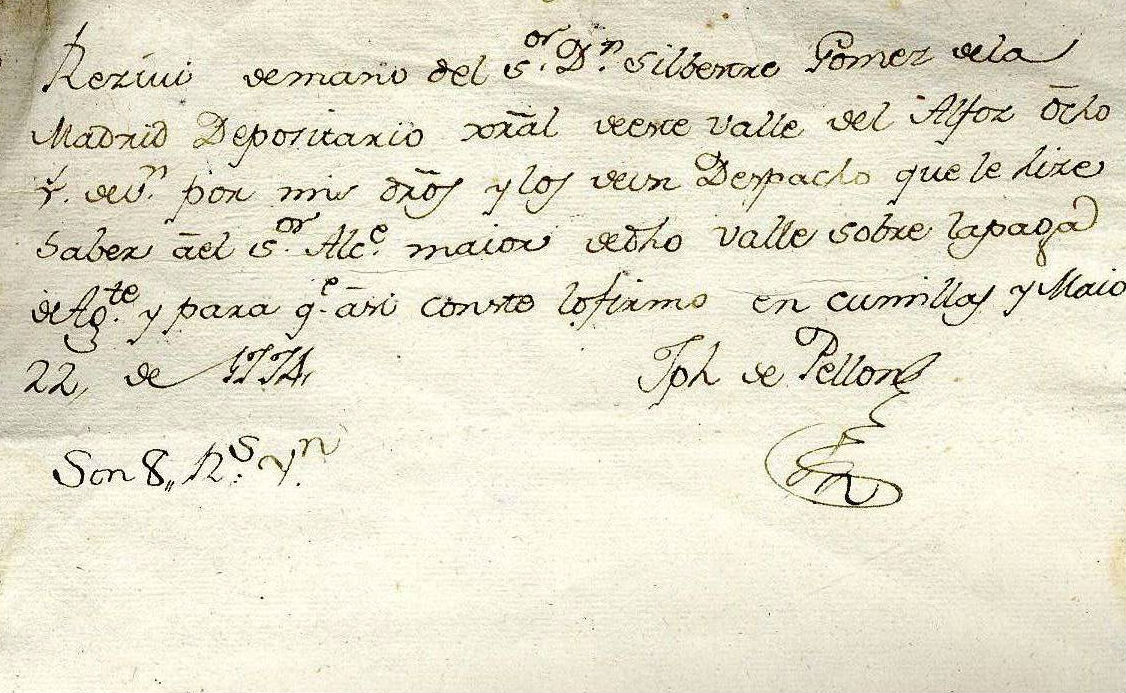 Rezivi de mano del S.or D.n Silbestre Gomez de la
Madrid Depositario xrãl de este valle del Alfoz õcho
r.s de v.n por mis drõs y los de un Despacho que le hize
saber ãel S.or Alc.e maior de dho valle sobre la paga
de Ag.te y para q.e ãsi conste lo firmo en cumillas y Maio
22, de 1774,
Jph de Pellon
Son 8,, R.s v.n